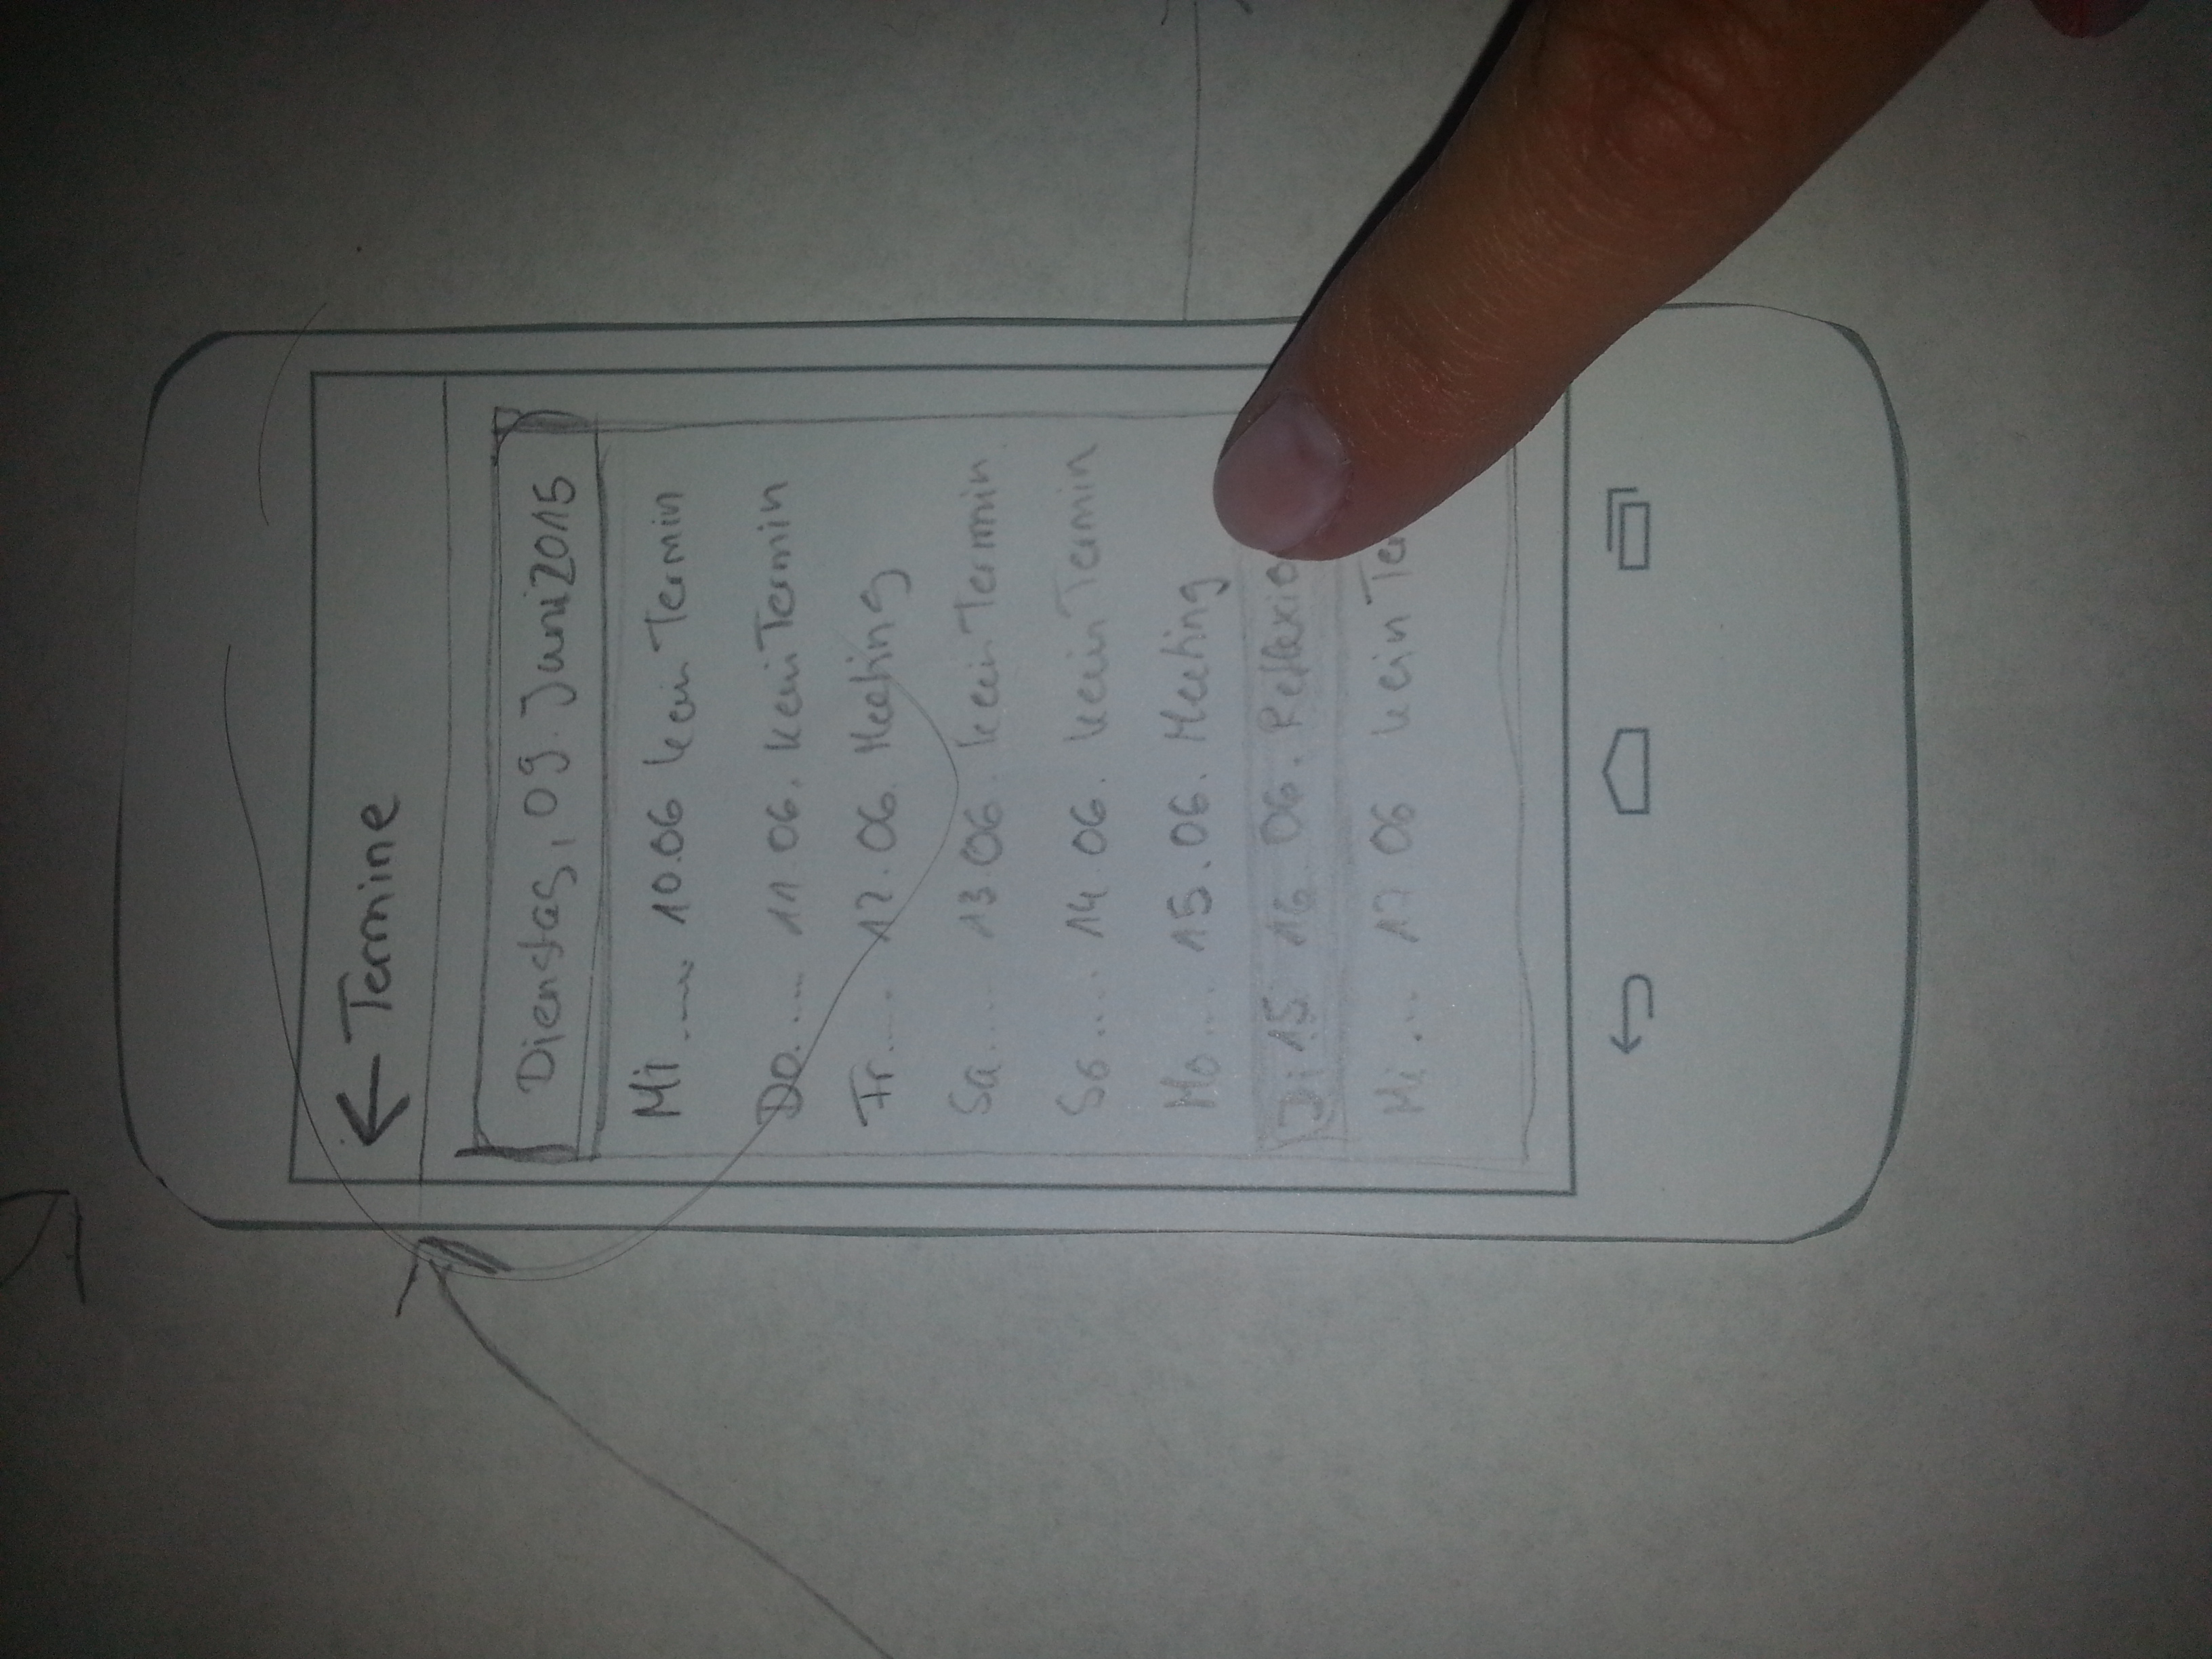 ← Termine
Dienstag, 09. Juni 2015
Mi ..... 10.06 kein Termin
Do ..... 11.06. kein Termin
Fr..... 12.06. Meeting
Sa.... 13.06. kein Termin
So .... 14.06. kein Termin
Mo .... 15.06. Meeting
Di 15 16.06. Reflexio
Mi ... 17 06 kein Te